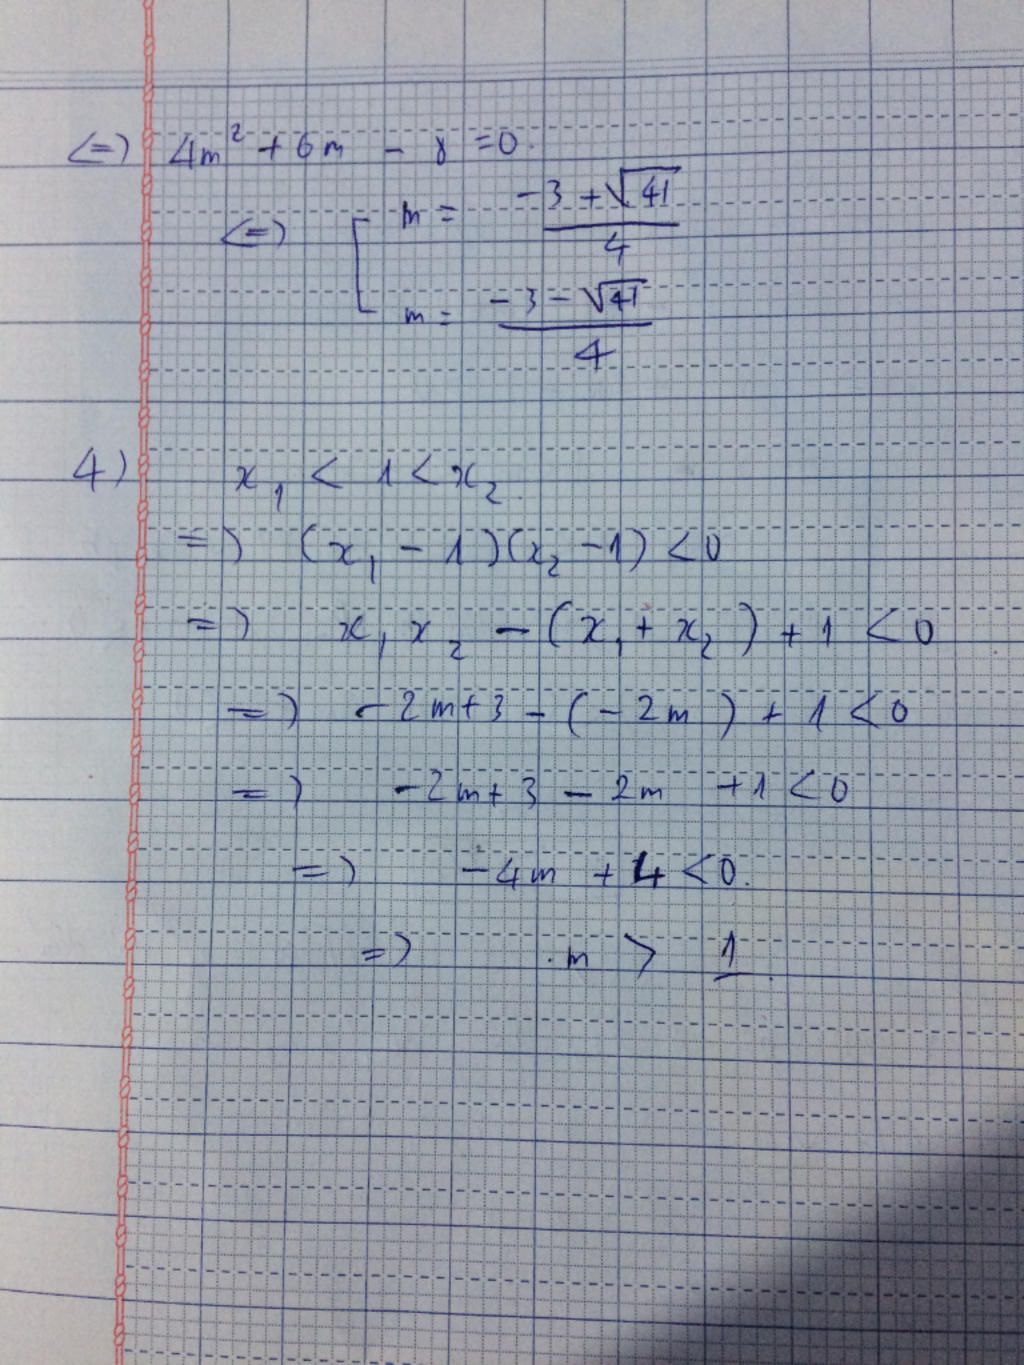 <=) 4m² + 6m - 8 = 0.
<=) [ m = (-3 + √41)/4
m = (-3 - √41)/4
4) x₁ < 1 < x₂.
=) (x₁ - 1)(x₂ - 1) < 0
=) x₁x₂ - (x₁ + x₂) + 1 < 0
=) -2m + 3 - (-2m) + 1 < 0
=) -2m + 3 - 2m + 1 < 0
=) -4m + 4 < 0.
=) m > 1